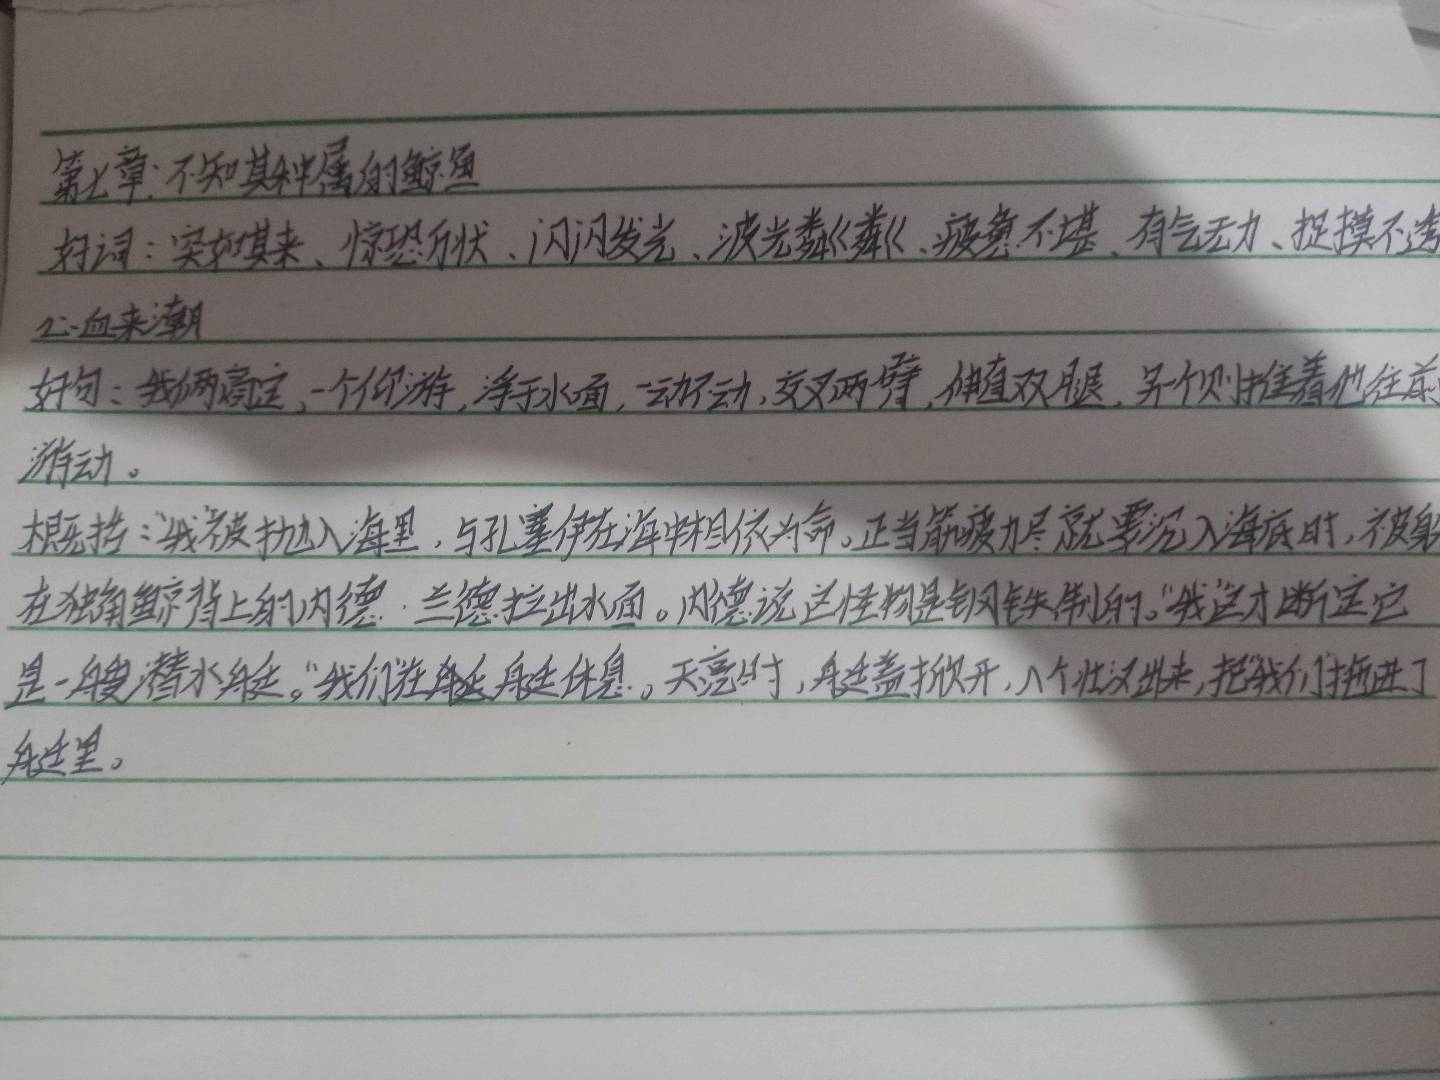 第七章：不知其种属的鲸鱼
好词：突如其来、惊恐万状、闪闪发光、波光粼粼、疲惫不堪、有气无力、捉摸不透
心血来潮
好句：我俩商定，一个仰游，浮于水面，一动不动，交叉两臂，伸直双腿，另一个则推着他往前
游动。
概括："我"被抛入海里，与孔塞伊在海中相依为命。正当筋疲力尽就要沉入海底时，被躲
在独角鲸背上的内德·兰德拉出水面。内德说这怪物是钢铁制的。"我"这才断定它
是一艘潜水艇。"我们"在艇休息。天亮时，艇盖掀开，八个壮汉出来，把"我们"拖进了
艇里。